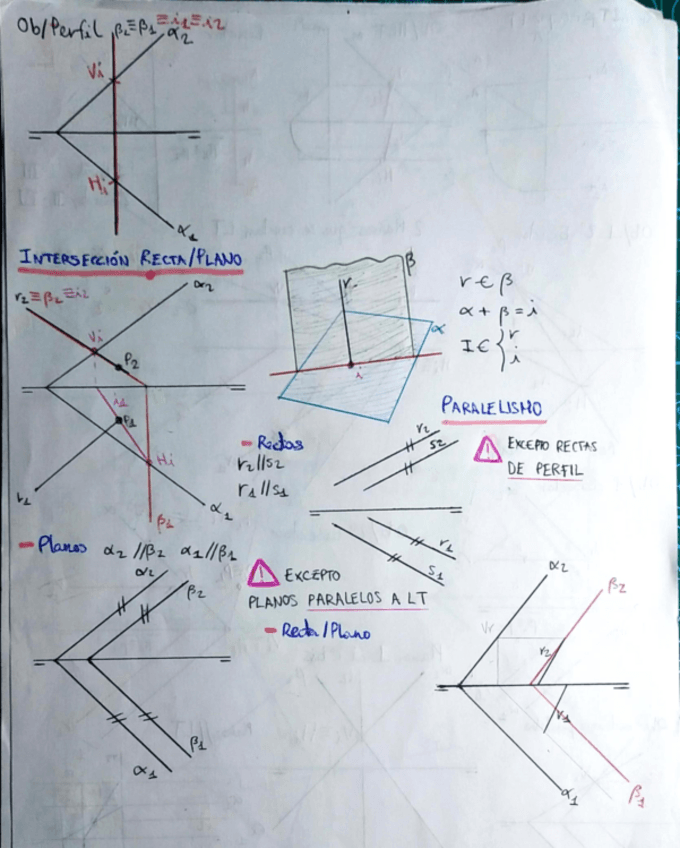 Ob/Perfil β₂≡β₁≡i₁≡i₂
α₂
Vi
Hi
α₁
INTERSECCIÓN RECTA/PLANO
r₂≡β₂≡i₂
α₂
Vi
P₂
i₁
P₁
Hi
r₁
α₁
β₁
r
β
α
i
r ∈ β
α + β = i
I ∈ { r
i
PARALELISMO
- Rectas
r₂//s₂
r₁//s₁
r₂
s₂
r₁
s₁
! EXCEPTO RECTAS
DE PERFIL
- Planos α₂//β₂ α₁//β₁
α₂
β₂
β₁
α₁
! EXCEPTO
PLANOS PARALELOS A LT
- Recta/Plano
α₂
β₂
Vr
r₂
r₁
α₁
β₁